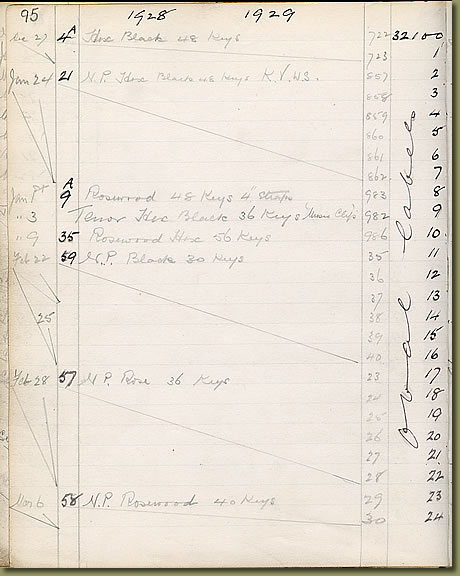 95 1928 1929
Dec 27 4A Hex Black 48 Keys 722 32100
723 1
Jan 24 21 N.P. Hex Black 48 Keys K.V.W.S. 857 2
858 3
859 4
860 5
861 6
862 7
Jan 1st A9 Rosewood 48 Keys 4" Straps 983 8
" 3 Tenor Hex Black 36 Keys 982 9
" 9 35 Rosewood Hex 56 Keys 986 10
Feb 22 59 N.P. Black 30 Keys 35 11
36 12
37 13
25 38 14
39 15
40 16
Feb 28 57 N.P. Rose 36 Keys 23 17
24 18
25 19
26 20
27 21
28 22
Mar 6 58 N.P. Rosewood 40 Keys 29 23
30 24
Oval labels